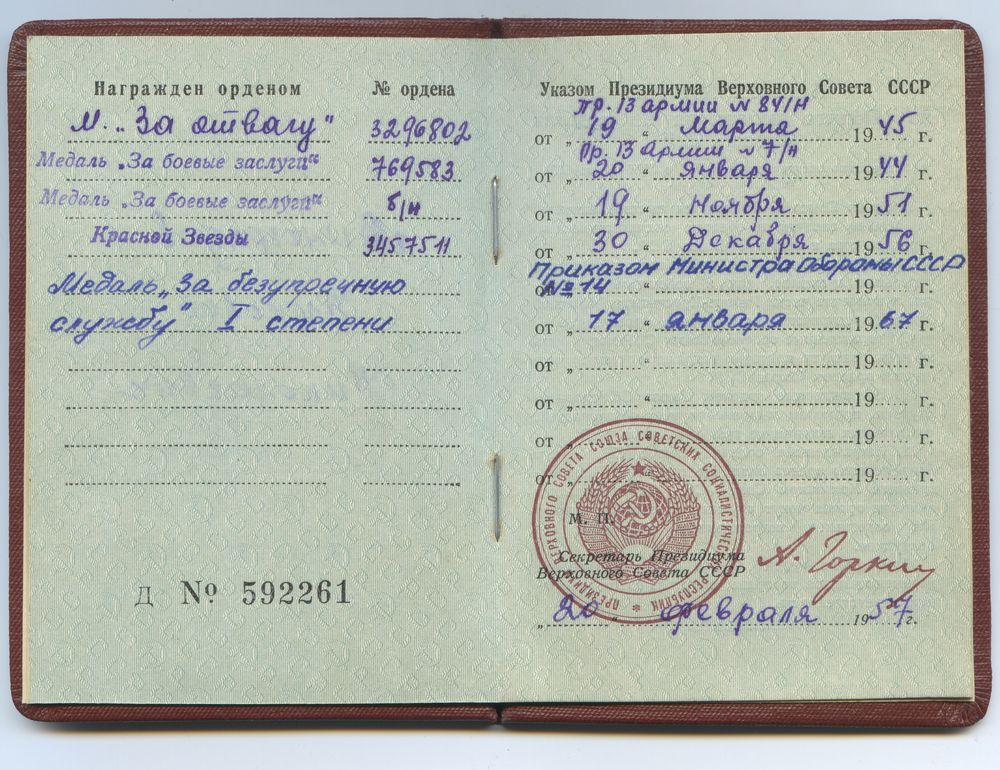 Награжден орденом
№ ордена
М. „За отвагу"
3296802
Медаль „За боевые заслуги"
769583
Медаль „За боевые заслуги"
б/н
Красной Звезды
3457511
Медаль „За безупречную
службу" I степени
Д № 592261
Указом Президиума Верховного Совета СССР
Пр. 13 армии № 841/н
от „ 19 " марта 1945 г.
Пр. 13 Армии № 7/н
от „ 20 " января 1944 г.
от „ 19 " Ноября 1951 г.
от „ 30 " Декабря 1956 г.
Приказом Министра Обороны СССР
№ 14
от „ " 19 г.
от „ 17 " января 1967 г.
от „ " 19 г.
от „ " 19 г.
от „ " 19 г.
от „ " 19 г.
ПРЕЗИДИУМ ВЕРХОВНОГО СОВЕТА СОЮЗА СОВЕТСКИХ СОЦИАЛИСТИЧЕСКИХ РЕСПУБЛИК
М. П.
Секретарь Президиума
Верховного Совета СССР
А. Горкин
„ 20 " февраля 1957 г.